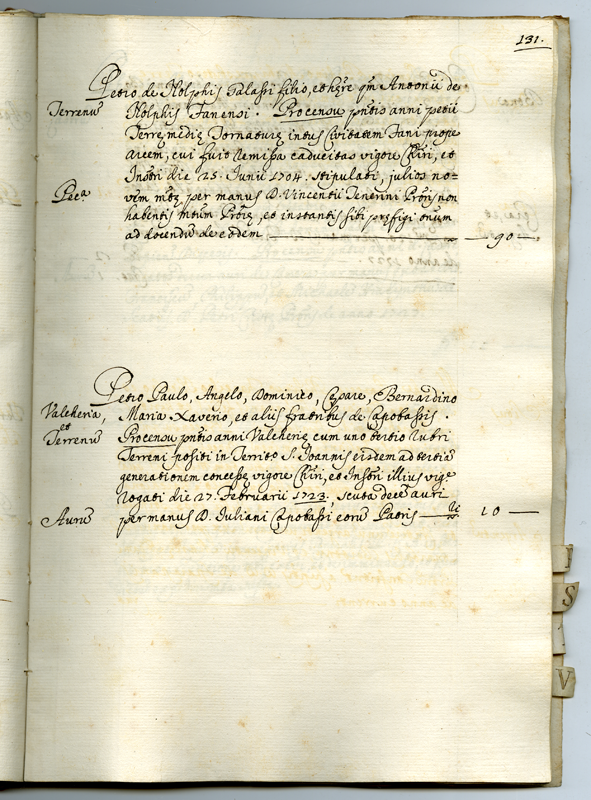 131.
Petro de Nolphis Galassi filio, et hęre qm̃ Antonii de
Terrenũ Nolphis Fanensi. Pro censu pñtis anni petii
Terrę medię Tornaturę intus Civitatem Fani prope
arcem, cui fuit remissa caducitas vigore Chiri, et
Instri die 25. Junii 1704. stipulati, julios no=
Pecᵃ vem mtę per manus D. Vincentii Tenerini Pr̃oris non
habentis mtum Pr̃oriz, et instantis sibi pręfigi onum
ad docendũ de eodem 90
Petro Paulo, Angelo, Dominico, Cęsare, Bernardino
Valcheria, Maria Xaverio, et aliis fratribus de Capobassis.
et
Terrenũ Pro censu pñtis anni Valcherię cum uno tertio Rubri
Terreni positi in Territᵒ S. Joannis eisdem ad tertiã
generationem concessę vigore Chiri, et Instri illius vigᵉ
rogati die 27. Februarii 1723. scuta decẽ auri
Aurũ per manus D. Juliani Capobassi eorũ Patris 10
S
V